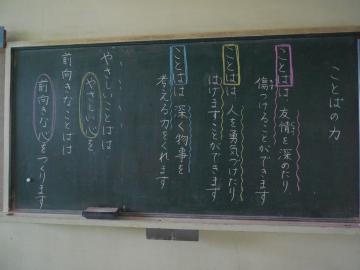 ことばの力
ことばは 友情を深めたり
傷つけることができます
ことばは 人を勇気づけたり
はげますことができます
ことばは 深く物事を
考える力をくれます
やさしいことばは
やさしい心を
前向きなことばは
前向きな心をつくります